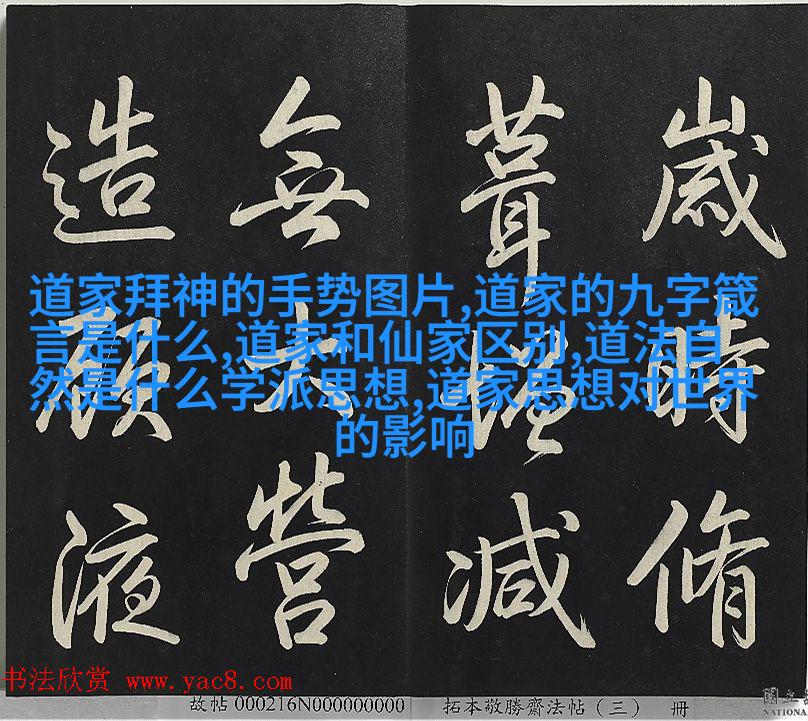 歲時脩
葺增減
無大營
造
液
道家拜神的手势图片,道家的九字箴
言是什么,道家和仙家区别,道法自
然是什么学派思想,道家思想对世界
的影响
书法欣赏 www.yac8.com
故帖000216N000000000 拓本敬勝齋法帖（三） 册
國立
NATIONA